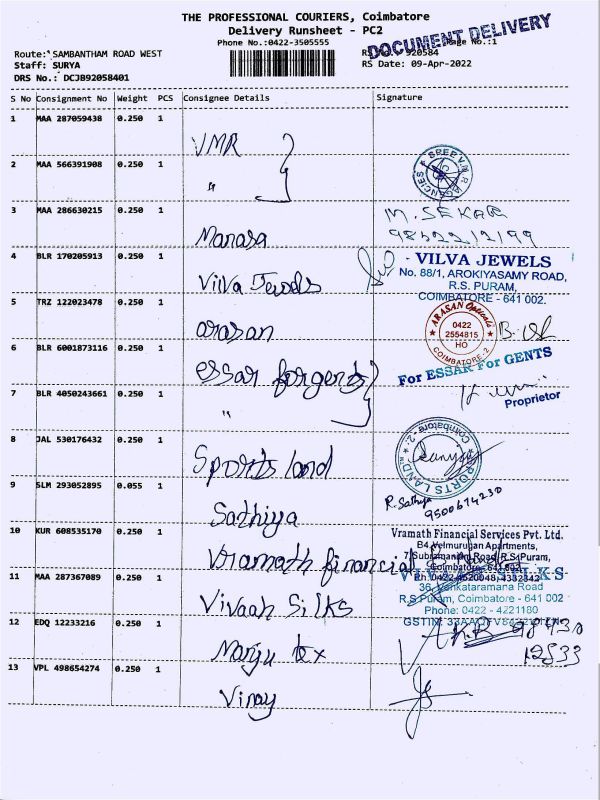 THE PROFESSIONAL COURIERS, Coimbatore
Delivery Runsheet - PC2
Phone No.:0422-3505555
DOCUMENT DELIVERY
Page No.:1
Route: SAMBANTHAM ROAD WEST
920584
Staff: SURYA
RS Date: 09-Apr-2022
DRS No.: DCJB92058401
S No Consignment No Weight PCS Consignee Details Signature
1 MAA 287059438 0.250 1
VMR
2 MAA 566391908 0.250 1
"
SREE V.M.R. AGENCIES
3 MAA 286630215 0.250 1
Manasa
M. SEKAR
9852212199
4 BLR 170205913 0.250 1
Vilva Jewels
VILVA JEWELS
No. 88/1, AROKIYASAMY ROAD,
R.S. PURAM,
COIMBATORE - 641 002.
5 TRZ 122023478 0.250 1
arasan
ARASAN Opticals
0422
2554815
HO
COIMBATORE-2
6 BLR 6001873116 0.250 1
essar for gents
For ESSAR For GENTS
Proprietor
7 BLR 4050243661 0.250 1
"
8 JAL 530176432 0.250 1
Sports land
SPORTS LAND
Coimbatore - 2.
9 SLM 293052895 0.055 1
Sathiya
R. Sathya
9500674230
10 KUR 608535170 0.250 1
Vramath financial
Vramath Financial Services Pvt. Ltd.
B4, Velmurugan Apartments,
7, Subramaniam Road, R.S. Puram,
Coimbatore
Ph: 0422-4520048, 4332342
11 MAA 287367089 0.250 1
Vivaah Silks
SILKS
36, Venkataramana Road
R.S. Puram, Coimbatore - 641 002
Phone: 0422 - 4221180
GSTIN:
12 EDQ 12233216 0.250 1
Manju tex
12533
13 VPL 498654274 0.250 1
Vinay